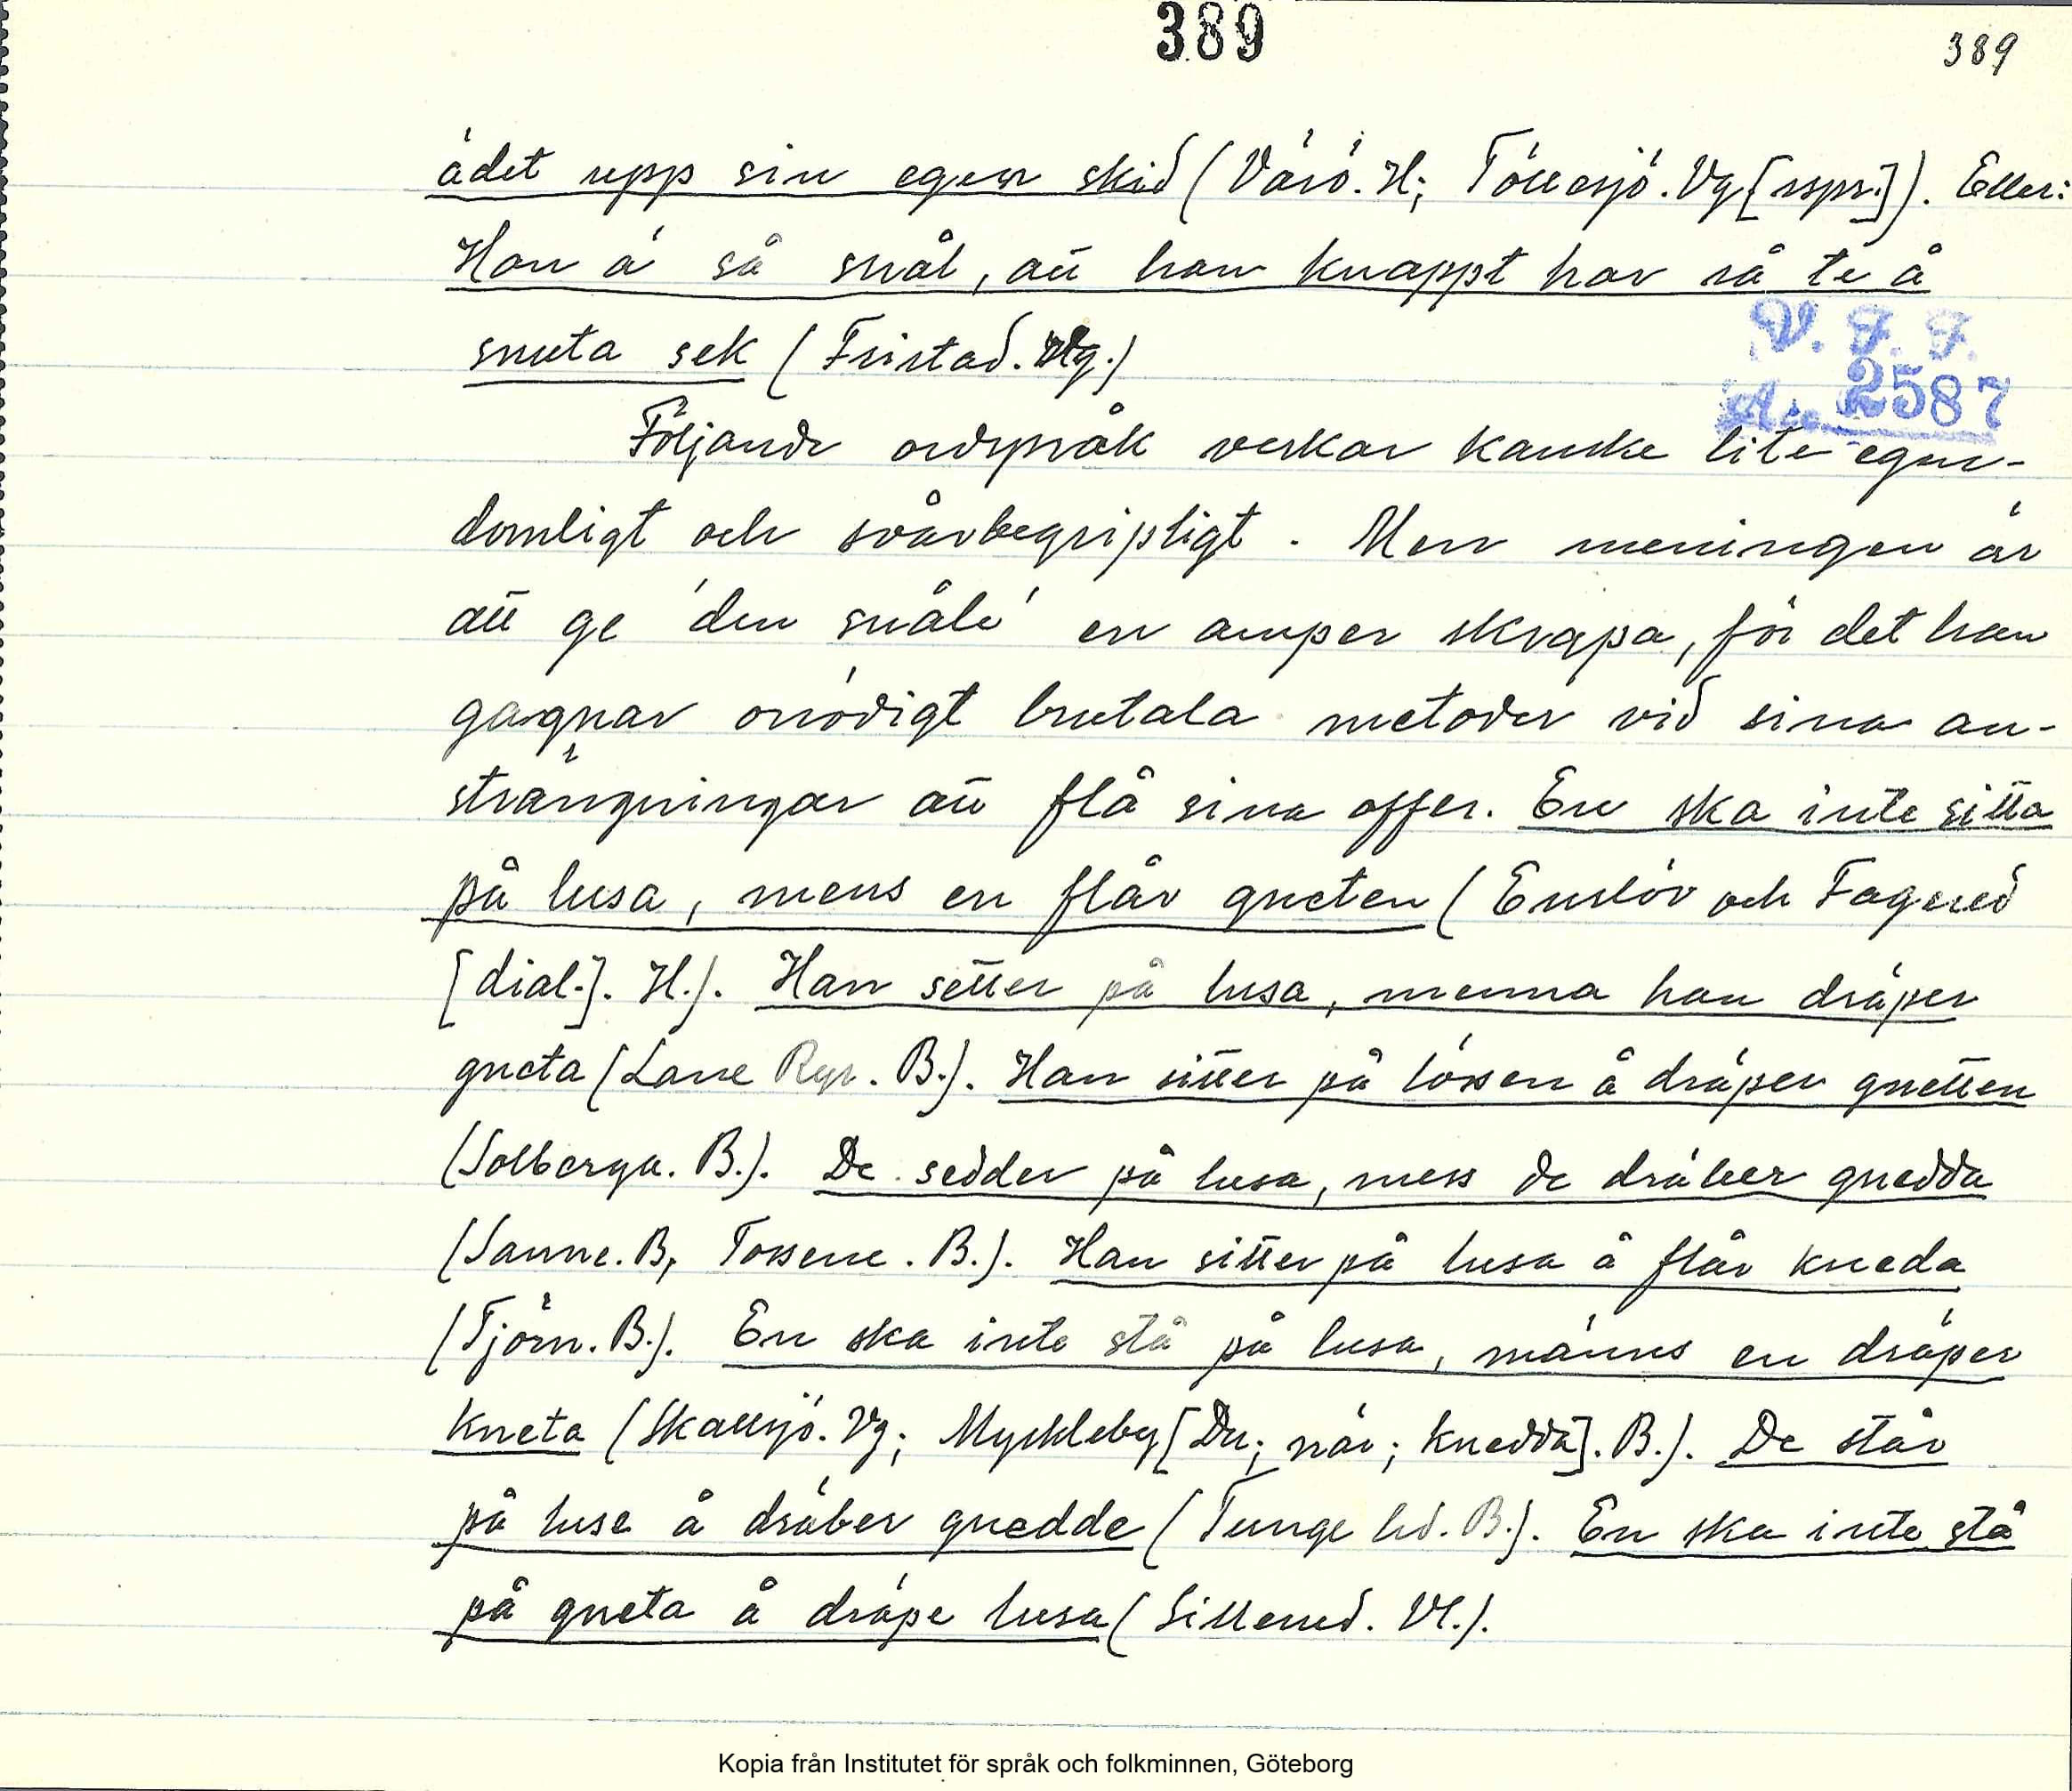 389
389
ädet upp sin egen skid (Värö. H; Töllesjö. Vg [rspr.]). Eller:
Han ä så snål, att han knappt har rå te å
snuta sek (Fristad. Vg.)
V. F. F.
Acc. 2587
Följande ordspråk verkar kanske lite egen-
domligt och svårbegripligt. Men meningen är
att ge 'den snåle' en amper skrapa, för det han
gagnar onödigt brutala metoder vid sina an-
strängningar att flå sina offer. En ska inte sitta
på lusa, mens en flår gneten (Enslöv och Fagered
[dial.]. H.). Han setter på lusa, menna han dräper
gneta (Lane Ryr. B.). Han sitter på lössen å dräper gnetten
(Solberga. B.). De sedder på lusa, mess de dräber gnedda
(Sanne. B, Tossene. B.). Han sitter på lusa å flår kneda
(Tjörn. B.). En ska inte stå på lusa, männs en dräper
kneta (Skallsjö. Vg; Myckleby [Du; när; knedda]. B.). De står
på luse å dräber gnedde (Tunge hd. B.). En ska inte stå
på gneta å dräpe lusa (Sillerud. Vl.).
Kopia från Institutet för språk och folkminnen, Göteborg